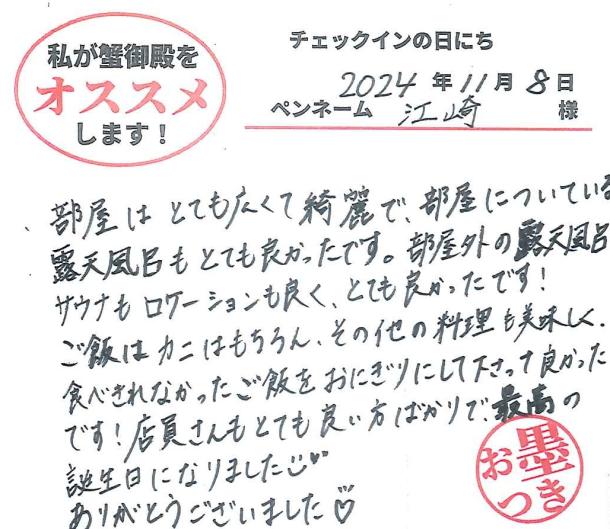 私が蟹御殿を
オススメ
します！
チェックインの日にち
2024年11月8日
ペンネーム 江崎 様
部屋はとても広くて綺麗で、部屋についている
露天風呂もとても良かったです。部屋外の露天風呂
サウナもロケーションも良く、とても良かったです！
ご飯はカニはもちろん、その他の料理も美味しく、
食べきれなかったご飯をおにぎりにして下さって良かった
です！店員さんもとても良い方ばかりで、最高の
誕生日になりました
ありがとうございました♡
お墨
つき